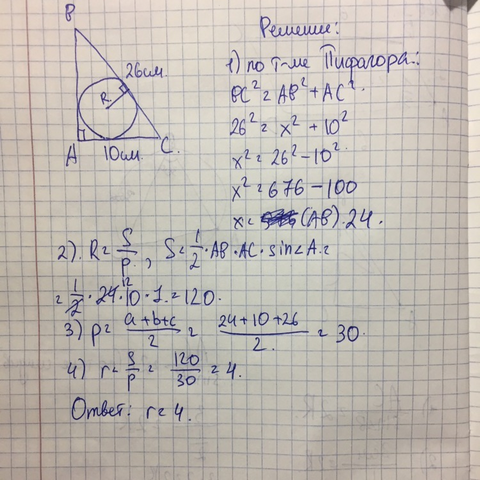 B
26см.
R
A
10см.
C.
Решение:
1) по т-ме Пифагора:
BC² = AB² + AC².
26² = x² + 10²
x² = 26² - 10².
x² = 676 - 100
x = (AB). 24.
2). R = S/p. , S = 1/2 · AB · AC · sin∠A =
= 1/2 · 24 12 · 10 · 1 = 120.
3) p = a+b+c/2 = 24+10+26/2. = 30.
4) r = S/p = 120/30 = 4.
Ответ: r = 4.